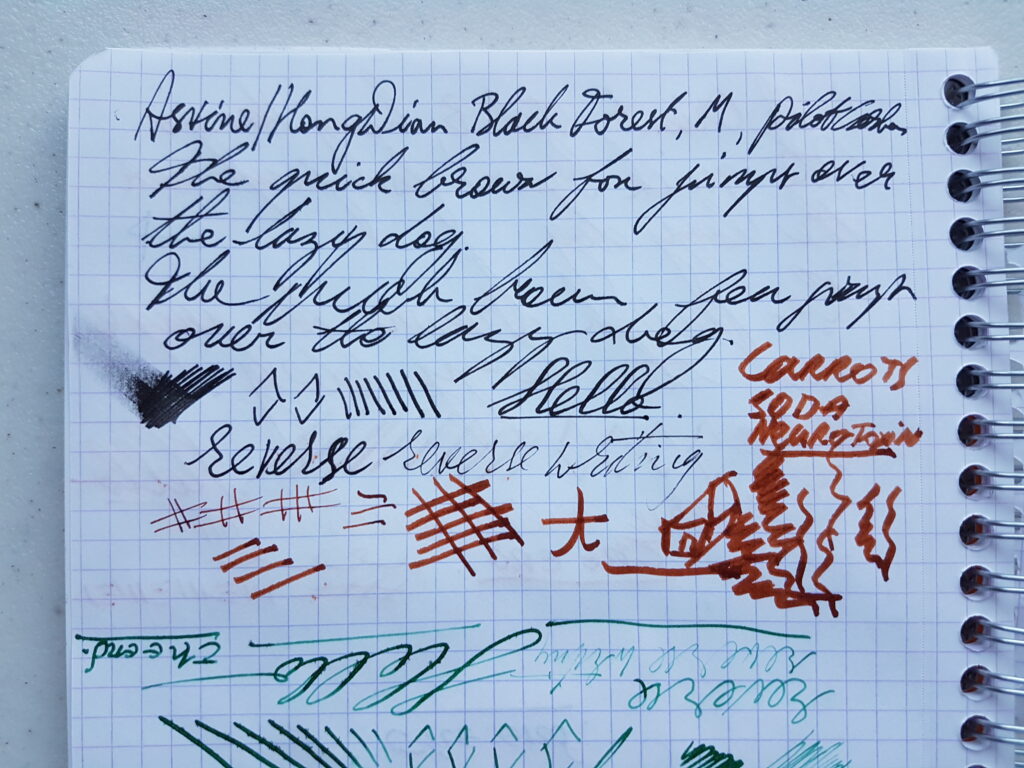 Asvine/HongDian Black Forest, M, pilot
The quick brown fox jumps over
the lazy dog.
The quick brown fox jumps
over the lazy dog.
Hello.
CARROTS
SODA
NEUROTOXIN
reverse reverse writing
大
The end.
Hello
reverse writing
reverse